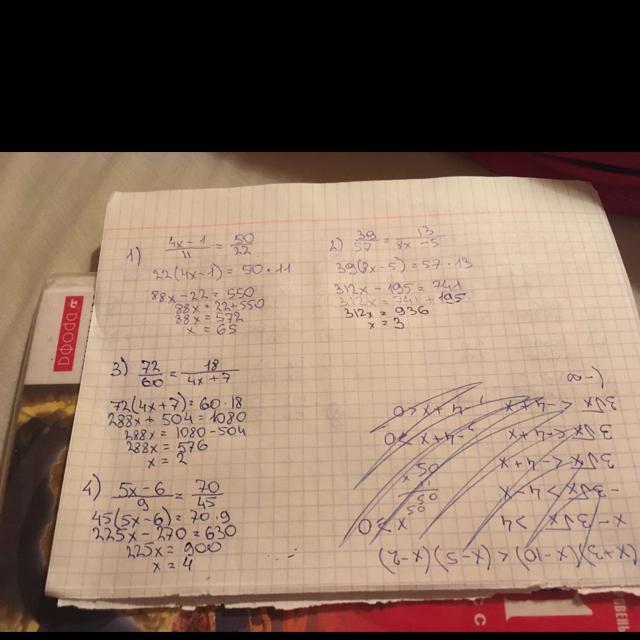 1) (4x - 1)/11 = 50/22
22(4x-1) = 50·11
88x - 22 = 550
88x = 22+550
88x = 572
x = 65
2) 39/57 = 13/(8x - 5)
39(8x-5) = 57·13
312x - 195 = 741
312x = 741 + 195
312x = 936
x = 3
3) 72/60 = 18/(4x + 7)
72(4x+7) = 60·18
288x + 504 = 1080
288x = 1080 - 504
288x = 576
x = 2
4) (5x - 6)/9 = 70/45
45(5x-6) = 70·9
225x - 270 = 630
225x = 900
x = 4
(x+3)(x-10) < (x-5)(x-2)
x - 3√x > 4
-3√x > 4-x
3√x < -4+x
3√x < -4+x
3√x < -4+x
(-∞